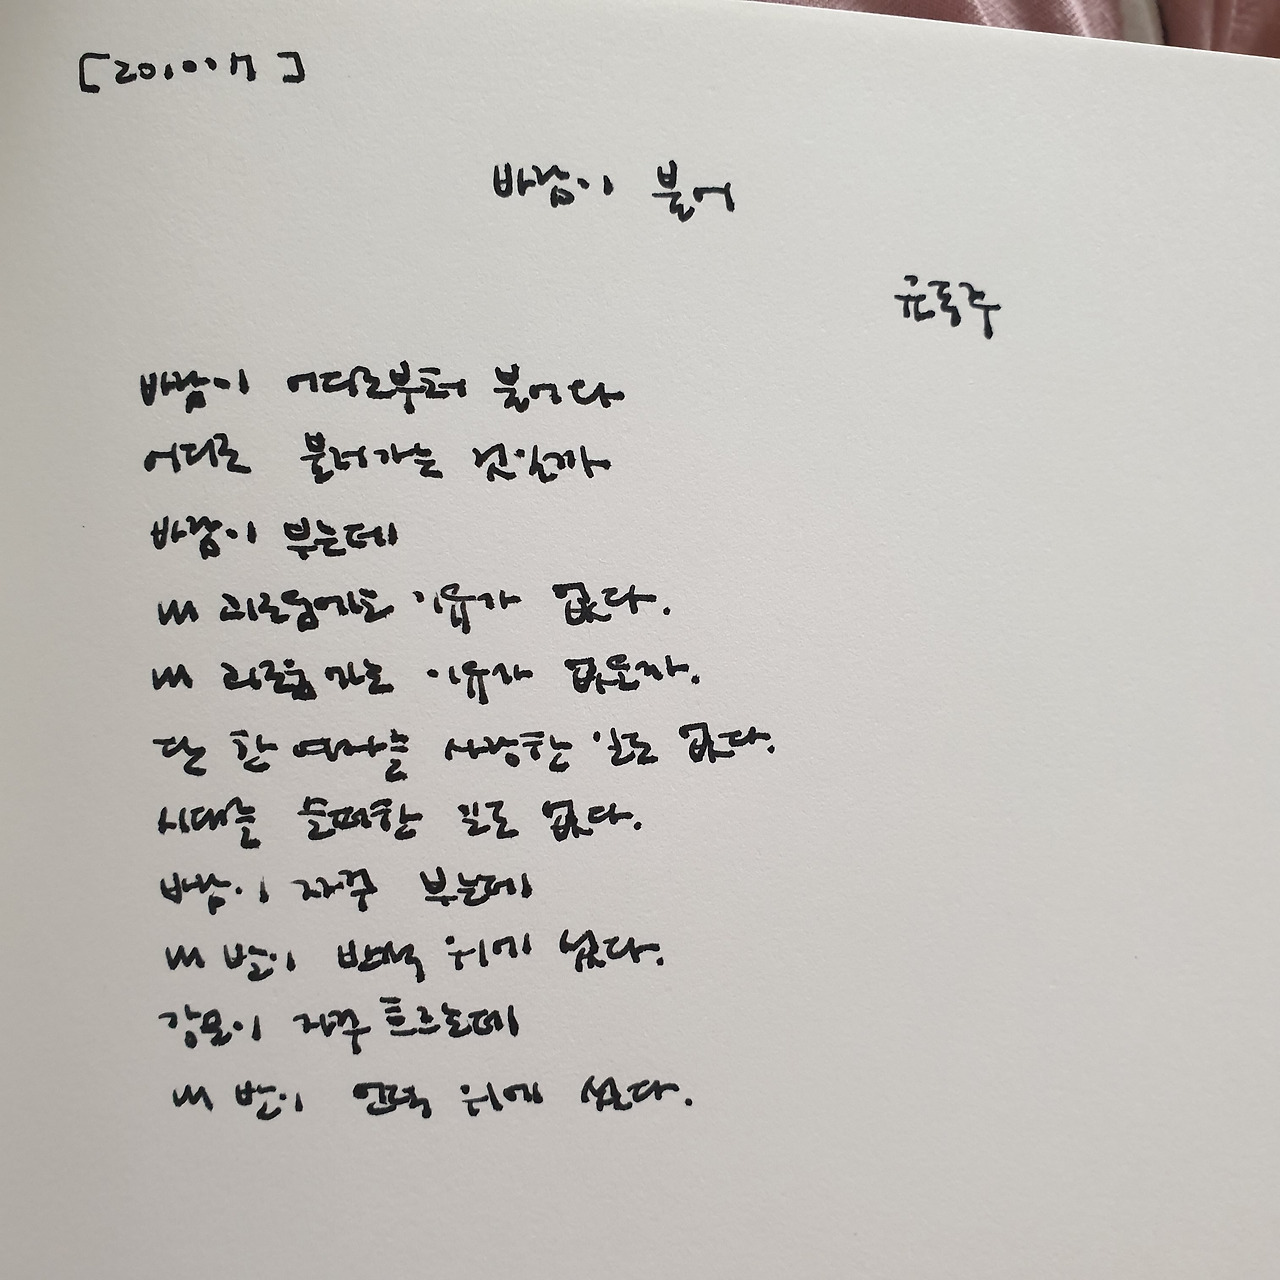 바람이 불어
윤동주
바람이 어디로부터 불어와
어디로 불려가는 것일까
바람이 부는데
내 괴로움에는 이유가 없다.
내 괴로움에는 이유가 없을까.
단 한 여자를 사랑한 일도 없다.
시대를 슬퍼한 일도 없다.
바람이 자꾸 부는데
내 발이 반석 위에 섰다.
강물이 자꾸 흐르는데
내 발이 언덕 위에 섰다.